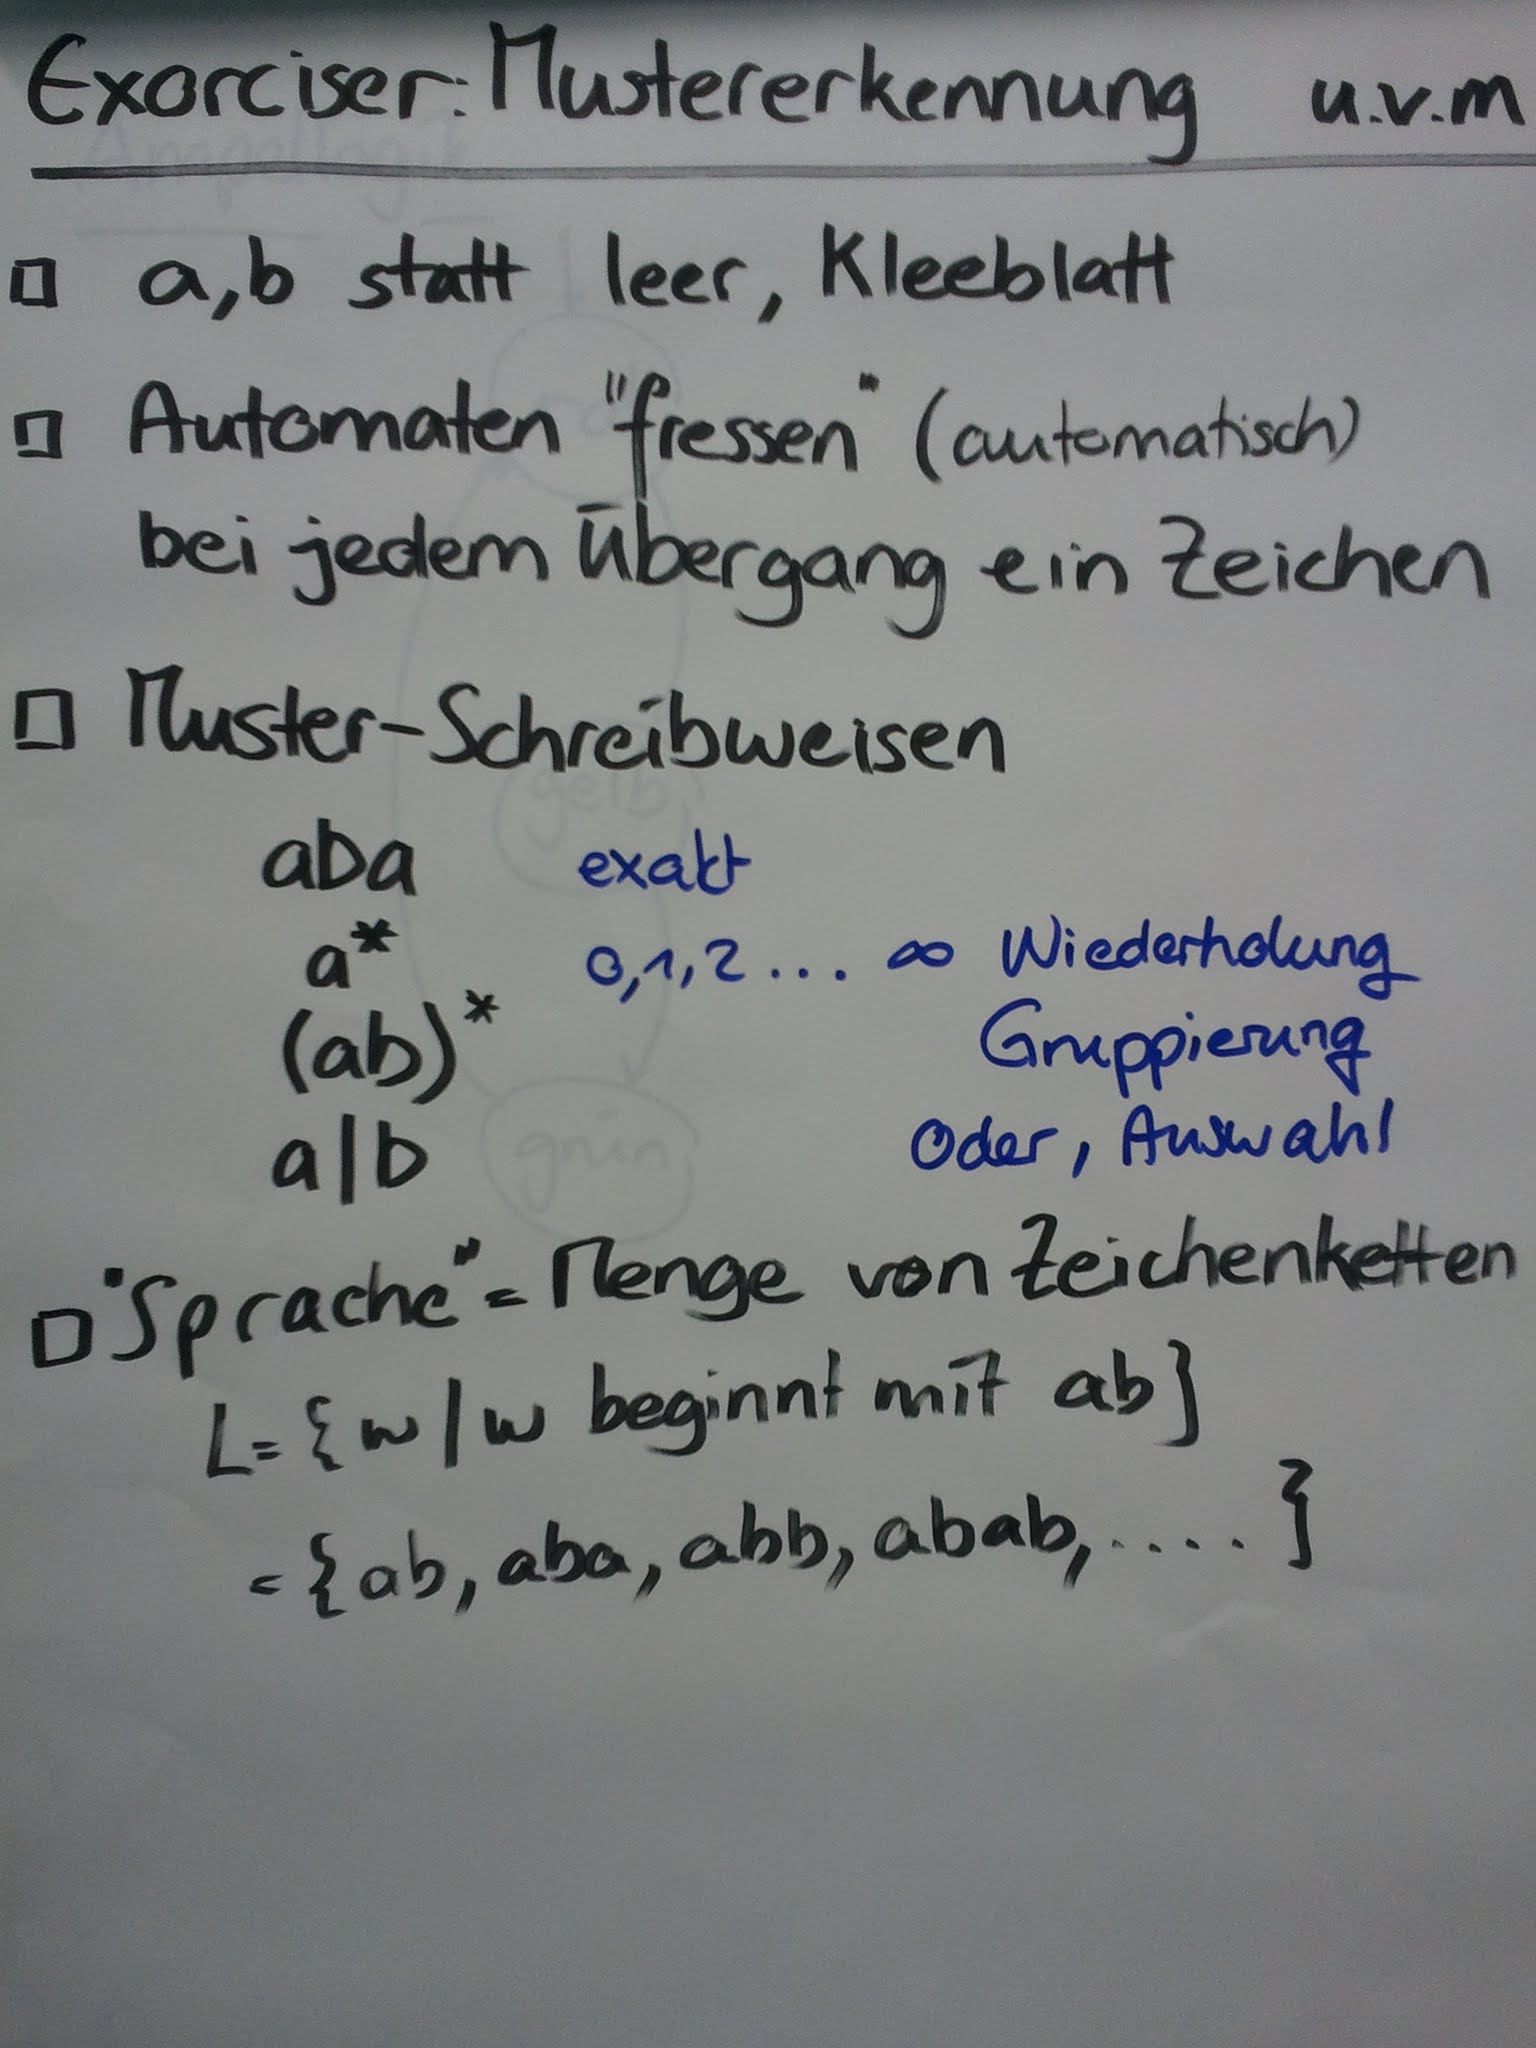 Exorciser: Mustererkennung u.v.m
a,b statt leer, Kleeblatt
Automaten "fressen" (automatisch)
bei jedem Übergang ein Zeichen
Muster-Schreibweisen
aba exakt
a* 0,1,2... ∞ Wiederholung
(ab)* Gruppierung
a|b Oder, Auswahl
"Sprache" = Menge von Zeichenketten
L = {w | w beginnt mit ab}
= {ab, aba, abb, abab, ....}
Ampellogik
rot
gelb
grün